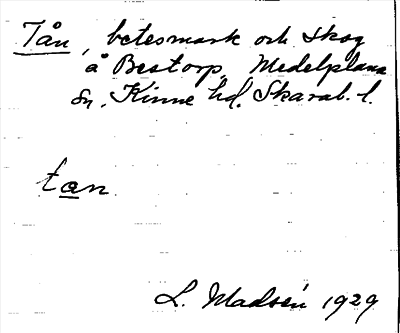 Tån, betesmark och skog
å Bestorp, Medelplana
sn, Kinne hd. Skarab. l.
tan
L. Madsén 1929